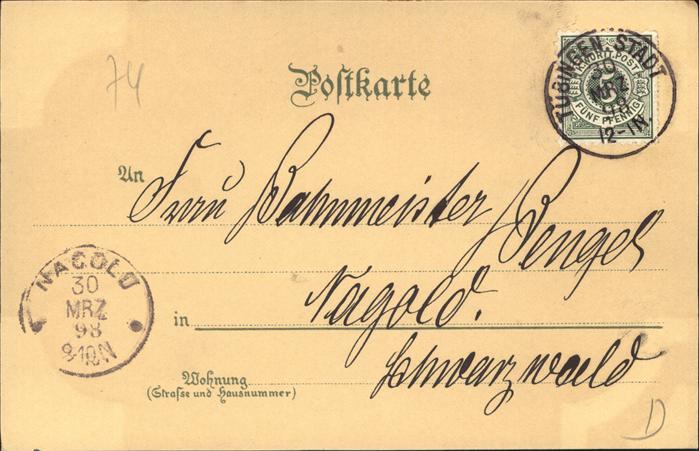 74
Postkarte
K. WÜRTT. POST
5
FÜNF PFENNIG
TÜBINGEN STADT
30
MRZ
98
12-1N.
An
Frau Bahnmeister Bengel
NAGOLD
30
MRZ
98
9-10N
in Nagold.
Wohnung
(Strasse und Hausnummer)
Schwarzwald
D